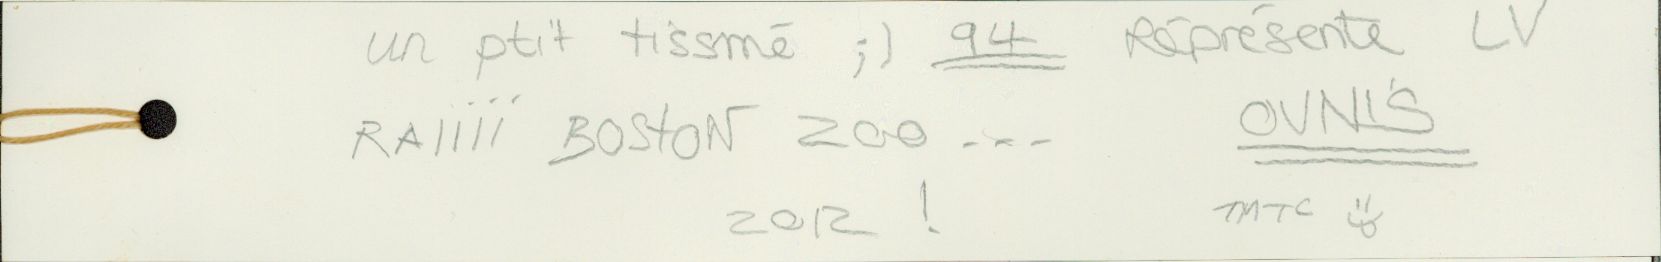 un ptit tissmé ;) 94 Réprésente LV
RAIIIII BOSTON 200 ---- OVNIS
2012 ! TMTC